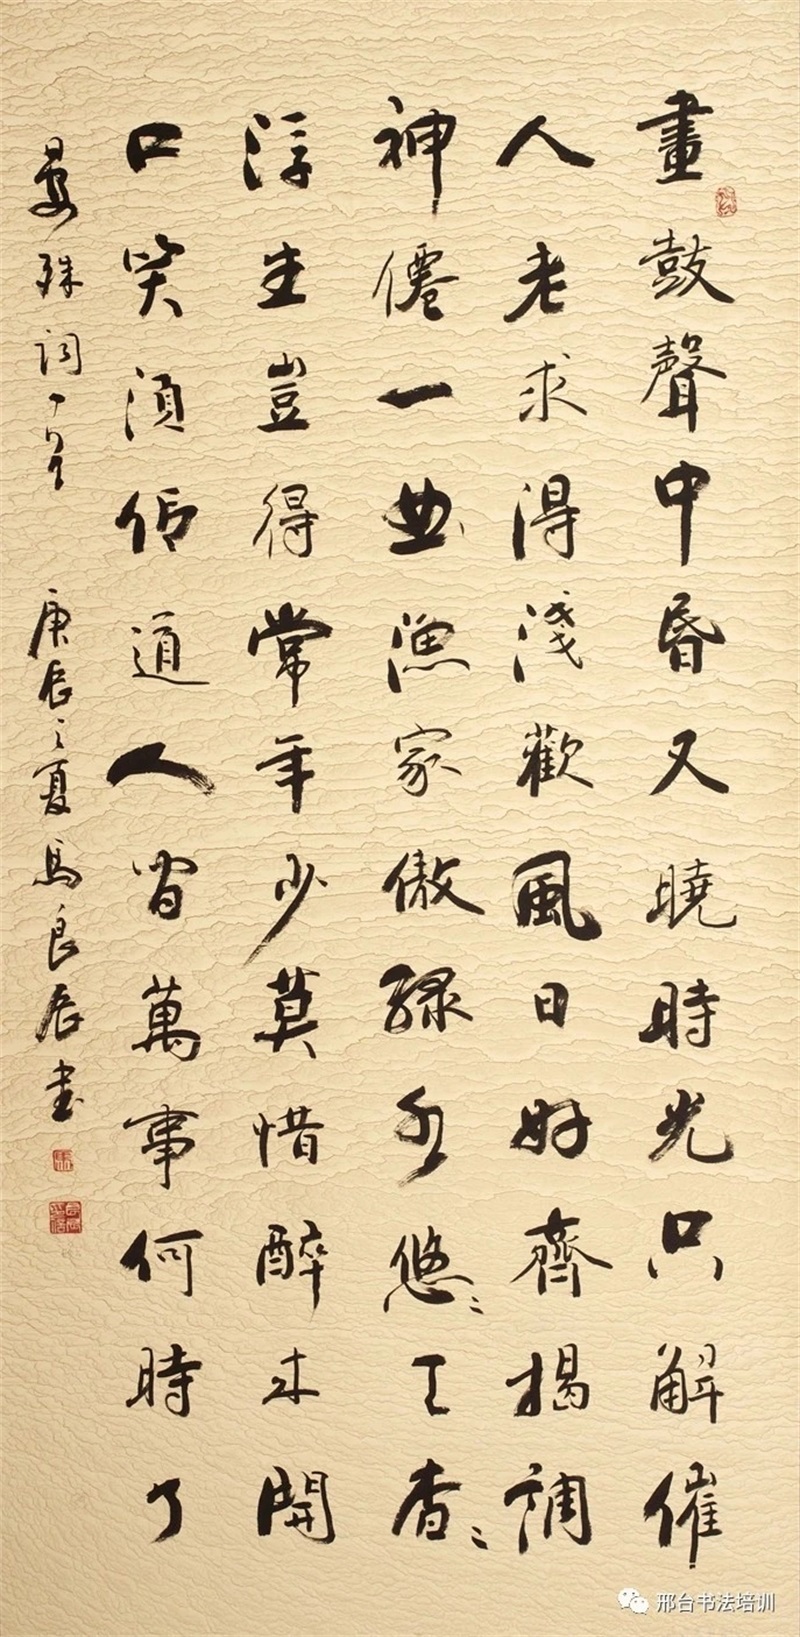 畫鼓聲中昏又曉時光只解催
人老求得淺歡風日好齊揭調
神僊一曲漁家傲綠水悠〻天杳〻
浮生豈得常年少莫惜醉來開
口笑須信道人間萬事何時了
晏殊詞一首 庚辰之夏馬良辰書
邢台书法培训